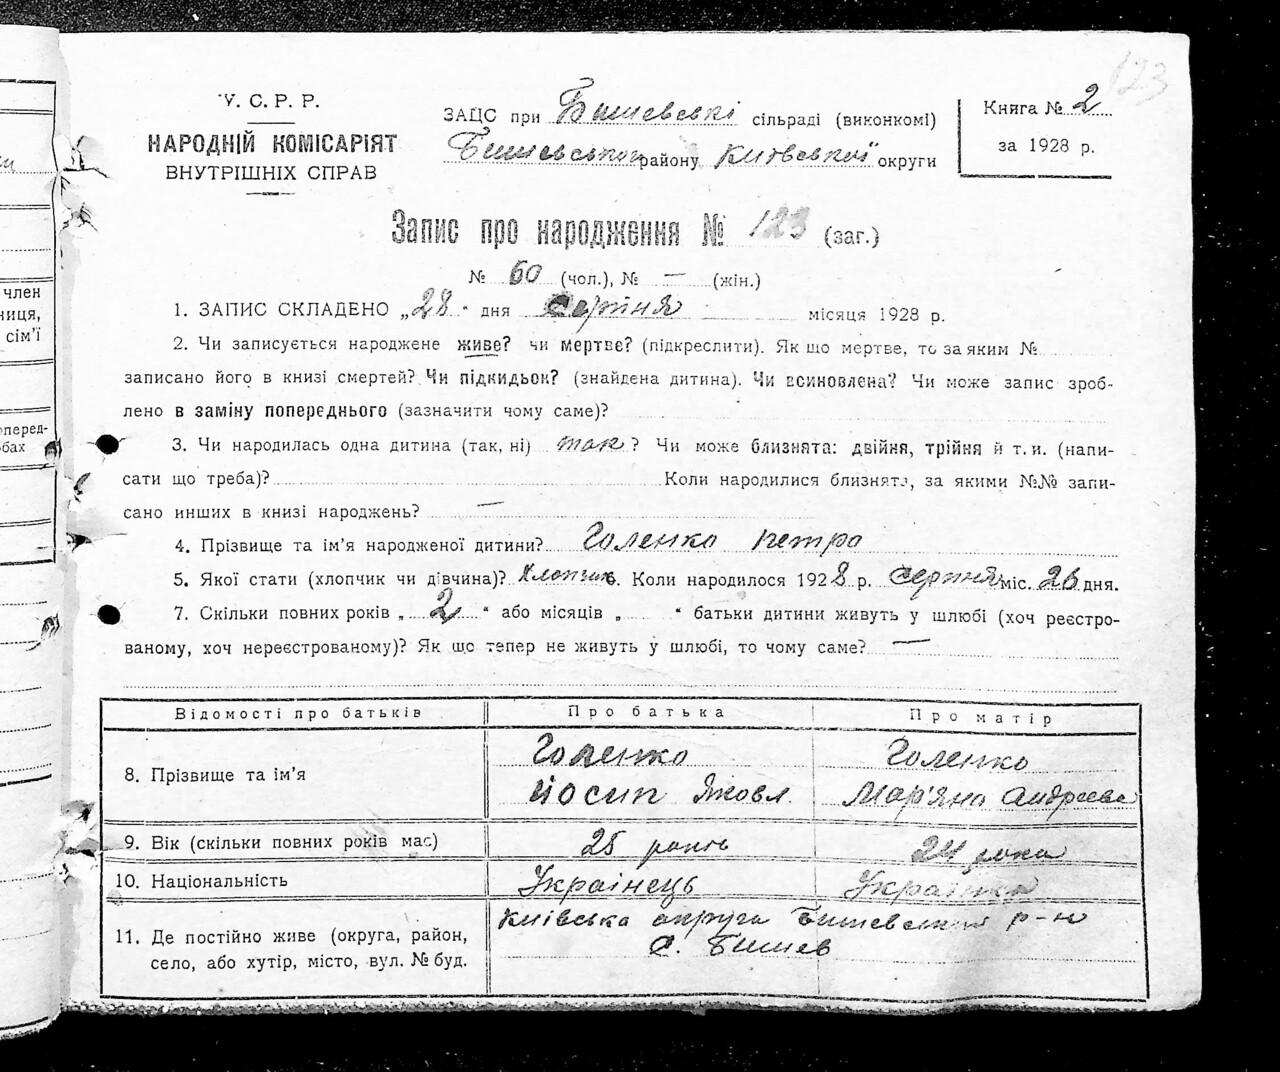 123
У. С. Р. Р.
НАРОДНІЙ КОМІСАРІЯТ
ВНУТРІШНІХ СПРАВ
ЗАЦС при Бишевські сільраді (виконкомі)
Бишевського району Київської округи
Книга № 2
за 1928 р.
Запис про народження № 123 (заг.)
№ 60 (чол.), № — (жін.)
1. ЗАПИС СКЛАДЕНО „28" дня Серпня місяця 1928 р.
2. Чи записується народжене живе? чи мертве? (підкреслити). Як що мертве, то за яким №
записано його в книзі смертей? Чи підкидьок? (знайдена дитина). Чи всиновлена? Чи може запис зроб-
лено в заміну попереднього (зазначити чому саме)?
3. Чи народилась одна дитина (так, ні) так? Чи може близнята: двійня, трійня й т. и. (напи-
сати що треба)? Коли народилися близнята, за якими №№ запи-
сано инших в книзі народжень? —
4. Прізвище та ім'я народженої дитини? Голенко Петро
5. Якої стати (хлопчик чи дівчина)? Хлопчик 6. Коли народилося 1928 р. серпня міс. 26 дня.
7. Скільки повних років „2" або місяців „ " батьки дитини живуть у шлюбі (хоч реєстро-
ваному, хоч нереєстрованому)? Як що тепер не живуть у шлюбі, то чому саме? —
Відомості про батьків Про батька Про матір
8. Прізвище та ім'я Голенко Йосип Яковл. Голенко Мар'яна Андреєва
9. Вік (скільки повних років має) 25 років 24 роки
10. Національність Українець Українка
11. Де постійно живе (округа, район,
село, або хутір, місто, вул. № буд.
Київська округа Бишевський р-н
с. Бишев
член
ниця,
сім'ї
оперед-
бах